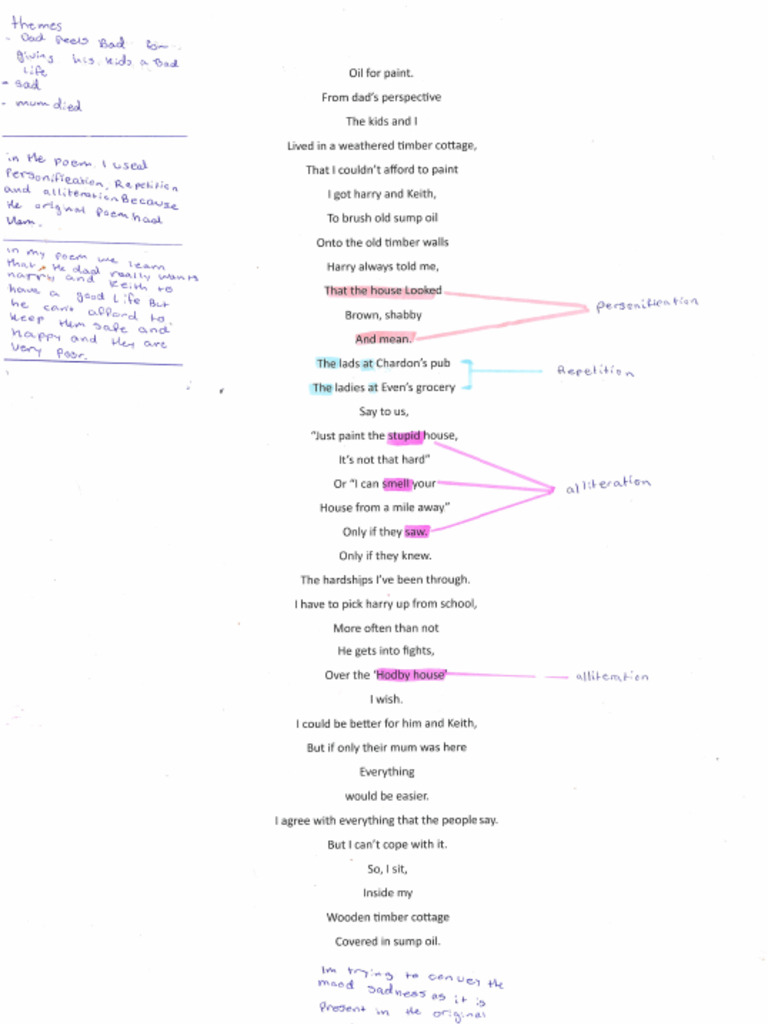 themes
- Dad feels Bad for
giving his kids a Bad
Life
- sad
- mum died
in the poem I used
Personification, Repetition
and alliteration Because
the original poem had
them.
in my poem we learn
that the dad really wants
harry and Keith to
have a good Life But
he can't afford to
keep them safe and
happy and they are
very poor.
Oil for paint.
From dad's perspective
The kids and I
Lived in a weathered timber cottage,
That I couldn't afford to paint
I got harry and Keith,
To brush old sump oil
Onto the old timber walls
Harry always told me,
That the house Looked
Brown, shabby
And mean.
personification
The lads at Chardon's pub
The ladies at Even's grocery
Repetition
Say to us,
"Just paint the stupid house,
It's not that hard"
Or "I can smell your
House from a mile away"
Only if they saw.
alliteration
Only if they knew.
The hardships I've been through.
I have to pick harry up from school,
More often than not
He gets into fights,
Over the 'Hodby house'
alliteration
I wish.
I could be better for him and Keith,
But if only their mum was here
Everything
would be easier.
I agree with everything that the people say.
But I can't cope with it.
So, I sit,
Inside my
Wooden timber cottage
Covered in sump oil.
Im trying to convey the
mood sadness as it is
Present in the original